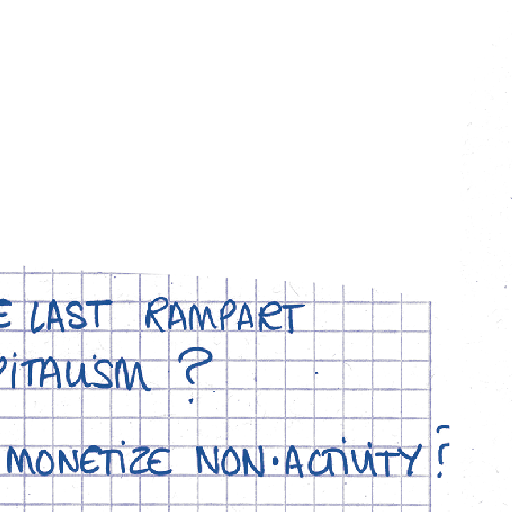 E LAST RAMPART
PITALISM ?
MONETIZE NON-ACTIVITY ?